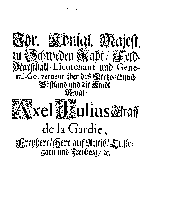 Ihr. Königl. Majest.
zu Schweden Raht / Feld-
Marschall-Lieutenant und Gene-
ral-Gouverneur über das Hertzogthum
Ehstland und die Stadt
Reval /
Axel Julius Graff
de la Gardie,
Freyherr / Herr auf
und &c.